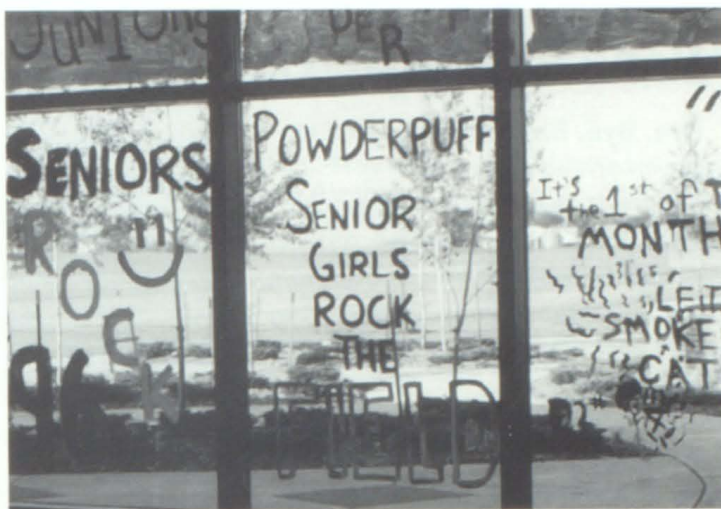 JUNIORS
PER
SENIORS
ROCK
96
POWDERPUFF
SENIOR
GIRLS
ROCK
THE
FIELD
"
It's
the 1st of T
MONTH
LET
SMOKE
CAT